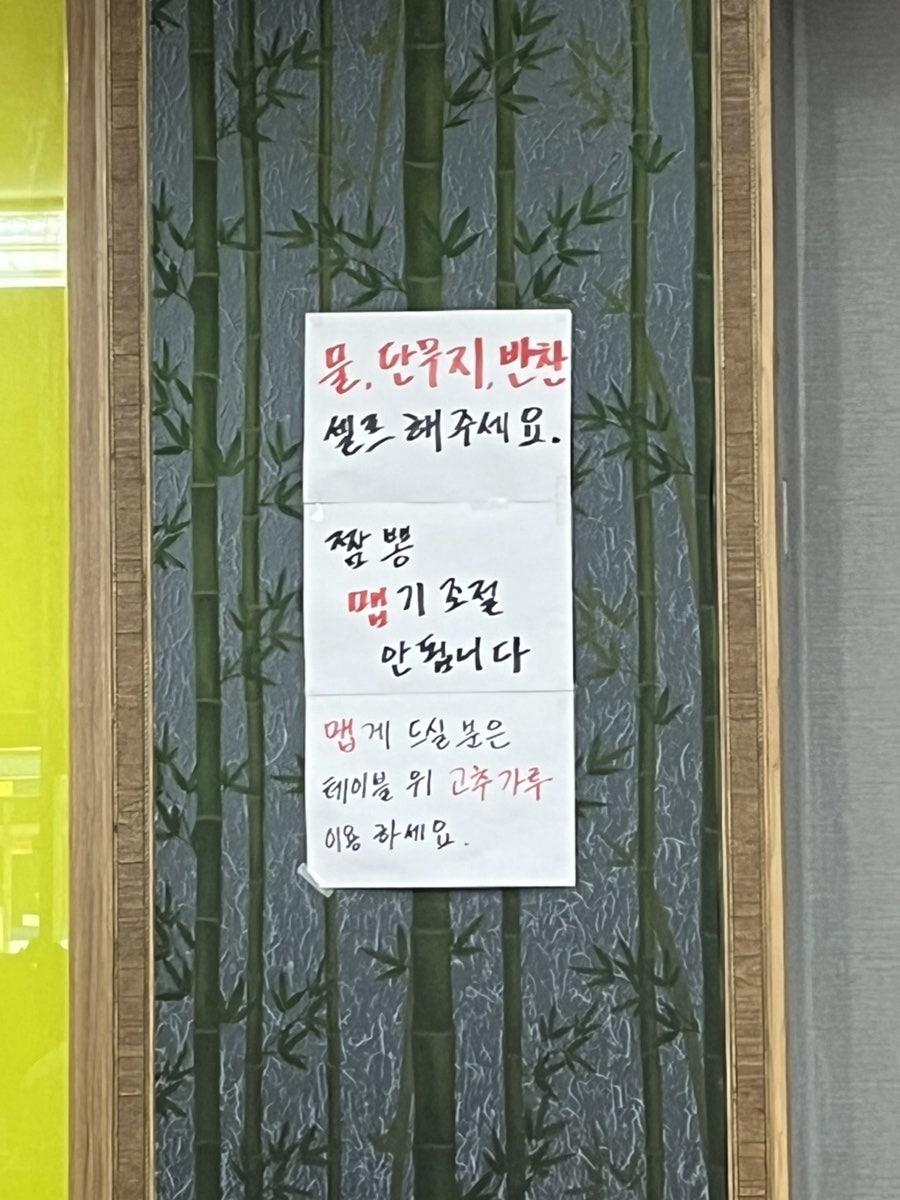 물, 단무지, 반찬
셀프 해주세요.
짬뽕
맵기 조절
안됩니다
맵게 드실분은
테이블 위 고추가루
이용하세요.